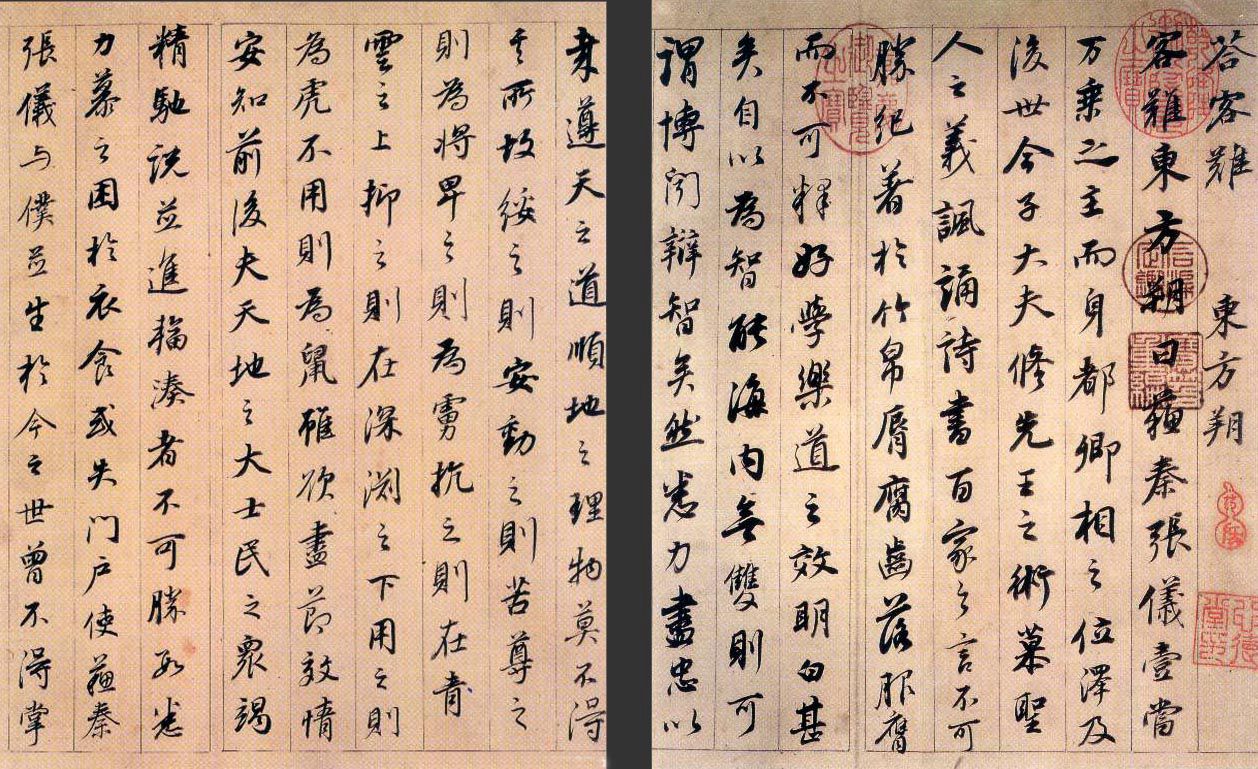 荅客難 東方朔
客難東方朔曰蘓秦張儀壹當
万乘之主而身都卿相之位澤及
後世今子大夫修先王之術慕聖
人之義諷誦詩書百家之言不可
勝紀著於竹帛脣腐齒落服膺
而不可釋好學樂道之效明白甚
矣自以為智能海内無雙則可
謂博聞辯智矣然悉力盡忠以
聿遵天之道順地之理物莫不得
其所故綏之則安動之則苦尊之
則為將卑之則為虜抗之則在青
雲之上抑之則在深淵之下用之則
為虎不用則為鼠雖欲盡莭效情
安知前後夫天地之大士民之衆竭
精馳說並進輻湊者不可勝數悉
力慕之困於衣食或失門户使蘓秦
張儀与僕並生於今之世曾不得掌